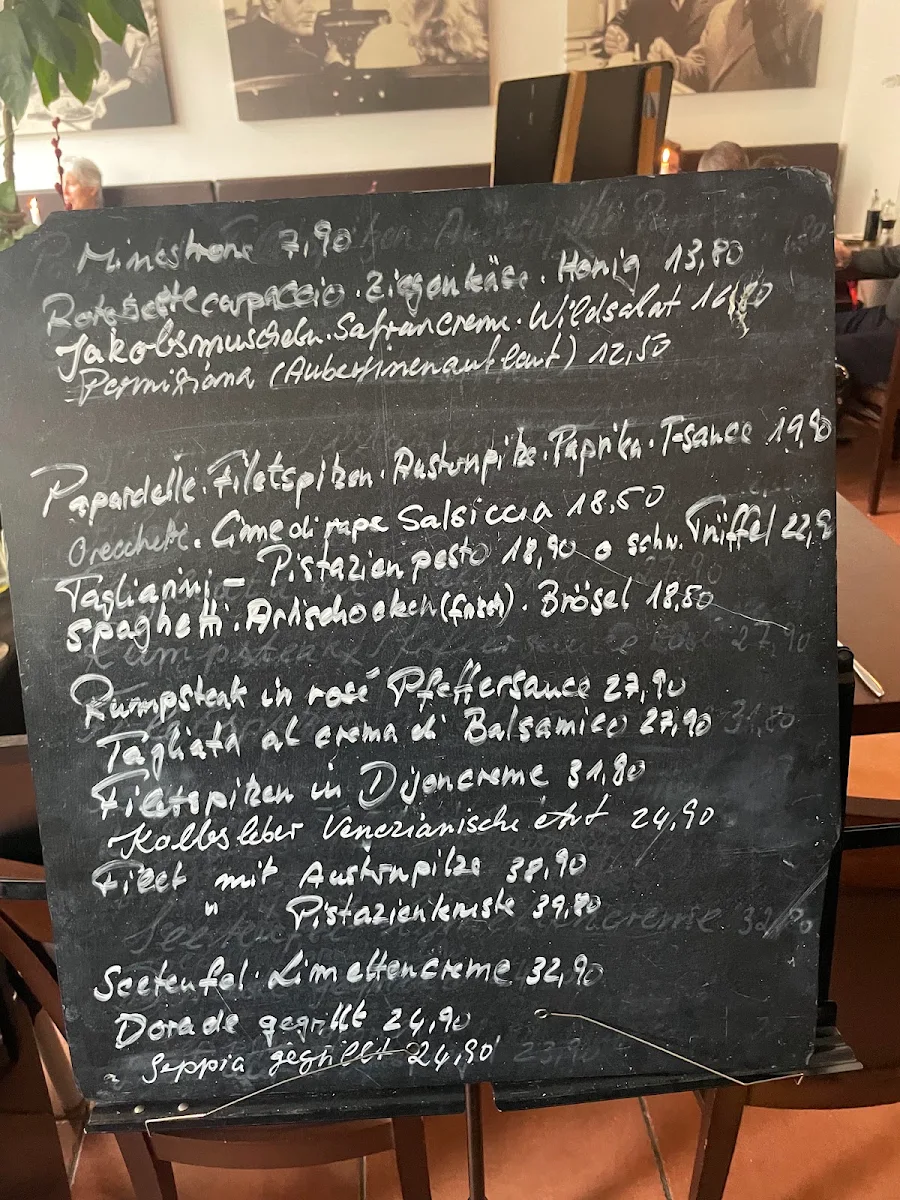 Minestrone 7,90
Rote Bettecarpaccio . Ziegenkäse . Honig 13,80
Jakobsmuscheln . Safrancreme . Wildsalat 16,80
Parmigiana (Auberginenauflauf) 12,50
Papardelle . Filetspitzen . Austernpilze . Paprika . T-sauce 19,80
Orecchiette . Cime di rape Salsiccia 18,50
Tagliarini - Pistazienpesto 18,90 o schw. Trüffel 22,90
Spaghetti . Artischocken (frisch) . Brösel 18,50
Rumpsteak in rosé Pfeffersauce 27,90
Tagliata al crema di Balsamico 27,90
Filetspitzen in Dijoncreme 31,80
Kalbsleber Venezianische Art 24,90
Filet mit Austernpilze 38,90
" Pistazienkruste 39,80
Seeteufel . Limettencreme 32,90
Dorade gegrillt 24,90
Seppia gegrillt 24,90